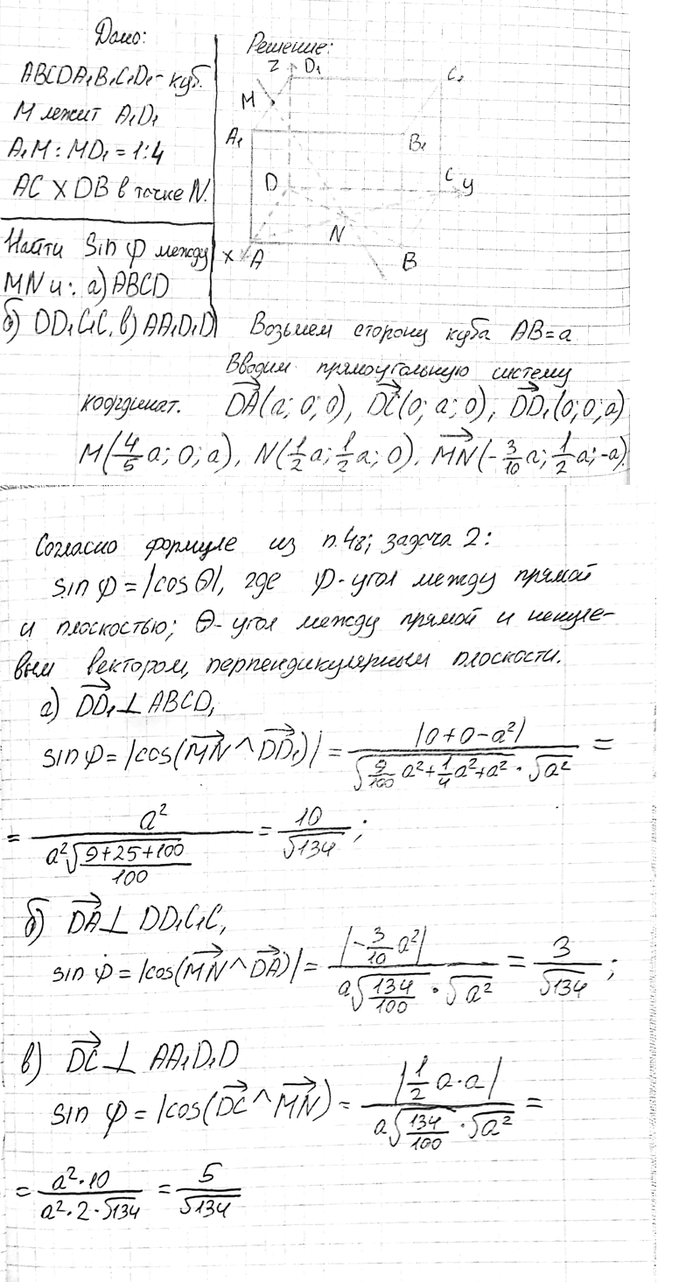 Дано:
ABCDA₁B₁C₁D₁ - куб.
M лежит A₁D₁
A₁M : MD₁ = 1:4
AC X DB в точке N.
Найти Sin φ между
MN и: а) ABCD
б) DD₁C₁C, в) AA₁D₁D
Решение:
Z D₁ C₁
M
A₁ B₁
D C y
N
x A B
Возьмем сторону куба AB=a
Вводим прямоугольную систему
координат. DA(a; 0; 0), DC(0; a; 0), DD₁(0; 0; a)
M(4/5 a; 0; a), N(1/2 a; 1/2 a; 0). MN(-3/10 a; 1/2 a; -a).
Согласно формуле из п.48; задача 2:
sin φ = |cos θ|, где φ - угол между прямой
и плоскостью; θ - угол между прямой и ненуле-
вым вектором, перпендикулярным плоскости.
а) DD₁ ⊥ ABCD,
sin φ = |cos(MN ^ DD₁)| = |0+0-a²| / (√(9/100 a² + 1/4 a² + a²) · √a²) =
= a² / (a² √((9+25+100)/100)) = 10/√134 ;
б) DA ⊥ DD₁C₁C,
sin φ = |cos(MN ^ DA)| = |-3/10 a²| / (a √(134/100) · √a²) = 3/√134 ;
в) DC ⊥ AA₁D₁D
sin φ = |cos(DC ^ MN) = |1/2 a·a| / (a √(134/100) · √a²) =
= a²·10 / (a²·2·√134) = 5/√134